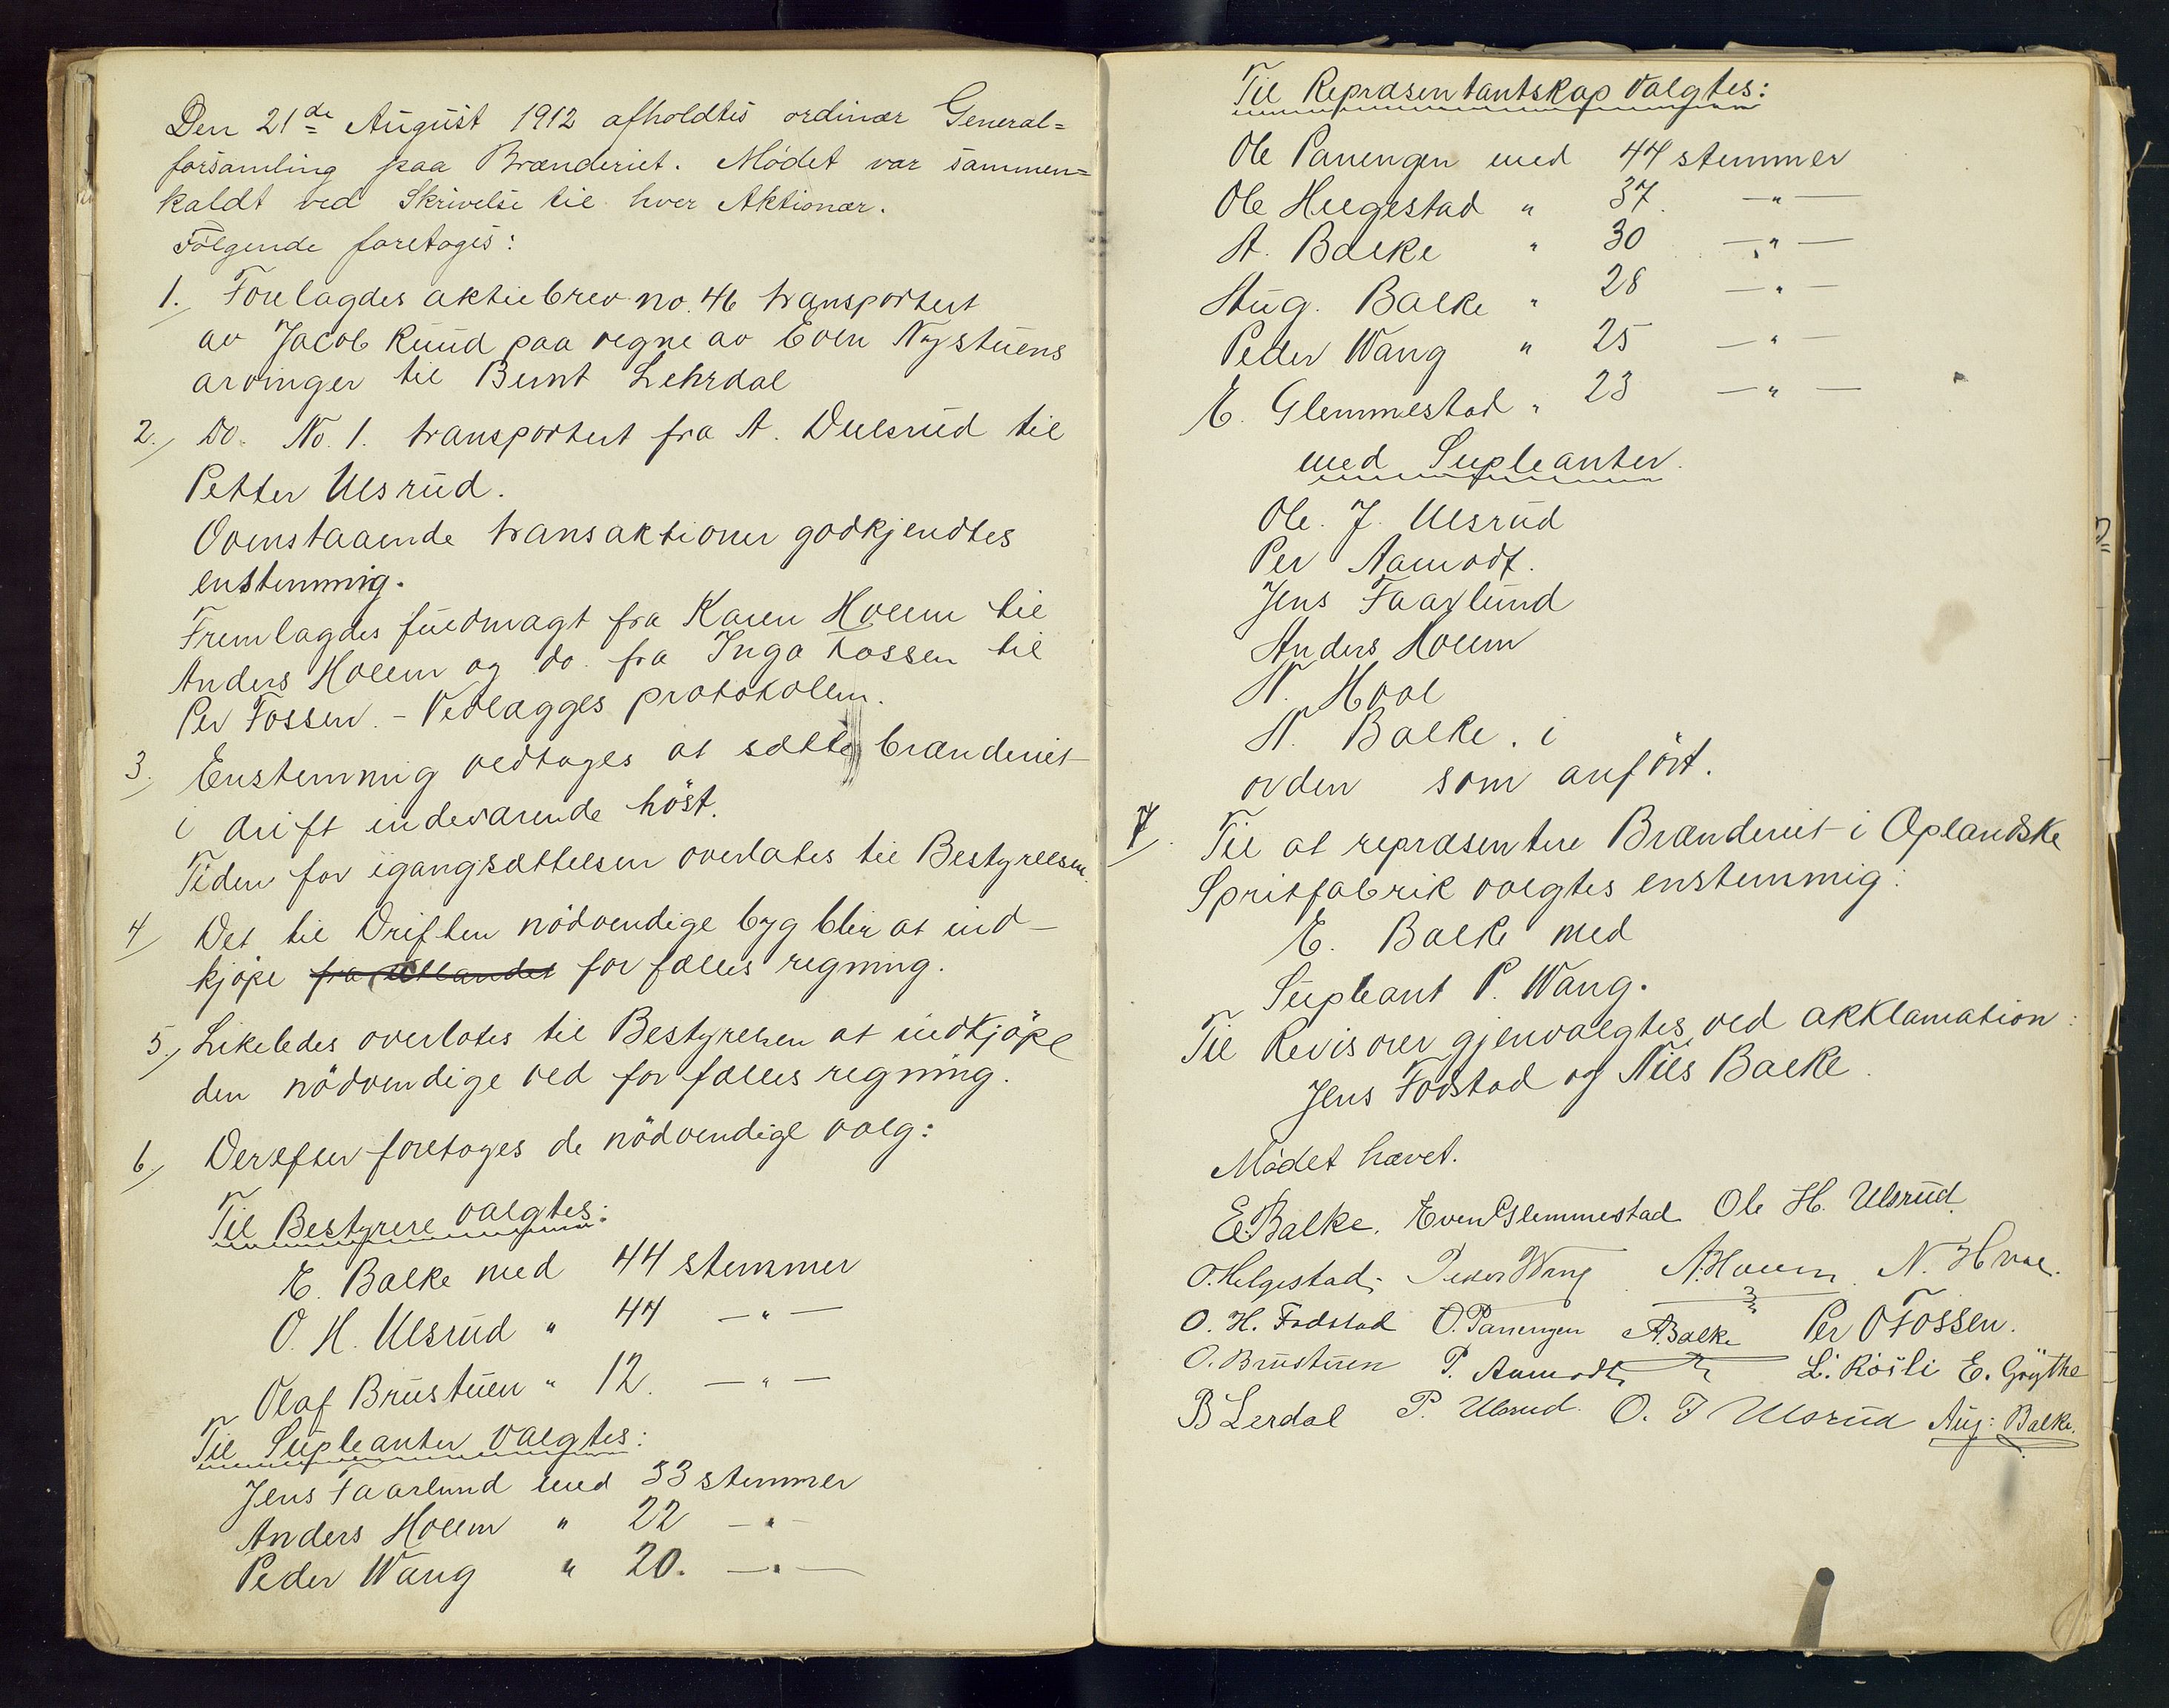 Den 21de August 1912 afholdtes ordinær General=
forsamling paa Brænderiet. Mödet var sammen=
kaldt ved Skrivelse til hver Aktionær.
Fölgende foretoges:
1. Forelagdes aktiebrev no. 46 transportert
av Jacob Ruud paa vegne av Even Nystuens
arvinger til Bernt Lehrdal
2. Do. No. 1. transportert fra A. Dulsrud til
Petter Ulsrud.
Ovenstaaende transaktioner godkjendtes
enstemmig.
Fremlagdes fuldmagt fra Karen Hoem til
Anders Hoem og do. fra Inga Fossen til
Per Fossen. - Vedlægges protokollen.
3. Enstemmig vedtoges at sætte brænderiet
i drift indeværende höst.
Tiden for igangsættelsen overlates til Bestyrelsen.
4 Det til Driften nödvendige byg blir at ind-
kjöpe fra Utlandet for fælles regning.
5. Likeledes overlates til Bestyrelsen at indkjöpe
den nödvendige ved for fælles regning.
6 Derefter foretoges de nödvendige valg:
Til Bestyrere valgtes:
E. Balke med 44 stemmer
O. H. Ulsrud " 44 — " —
Olaf Brustuen " 12. — " —
Til Supleanter valgtes:
Jens Faarlund med 33 stemmer
Anders Hoem " 22 — " —
Peder Wang " 20. — " —
Til Repræsentantskap valgtes:
Ole Panengen med 44 stemmer
Ole Helgestad " 37. — " —
A. Balke " 30 — " —
Aug. Balke " 28 — " —
Peder Wang " 25 — " —
E. Glemmestad " 23 — " —
med Supleanter.
Ole. J. Ulsrud
Per Aamodt.
Jens Faarlund
Anders Hoem
N. Hoel
N. Balke. i
orden som anfört.
7. Til at repræsentere Brænderiet i Oplandske
Spritfabrik valgtes enstemmig:
E. Balke med
Supleant P. Wang.
Til Revisorer gjenvalgtes ved akklamation:
Jens Fodstad og Nils Balke.
Mödet hævet.
E. Balke. Even Glemmestad Ole H. Ulsrud.
O. Helgestad. Peder Wang A. Hoem. N. Hoel.
O. H. Fodstad O. Panengen A. Balke Per O Fossen.
O. Brustuen P. Aamodt L. Rösli E. Gröythe
B Lerdal P. Ulsrud. O. J Ulsrud Aug: Balke.